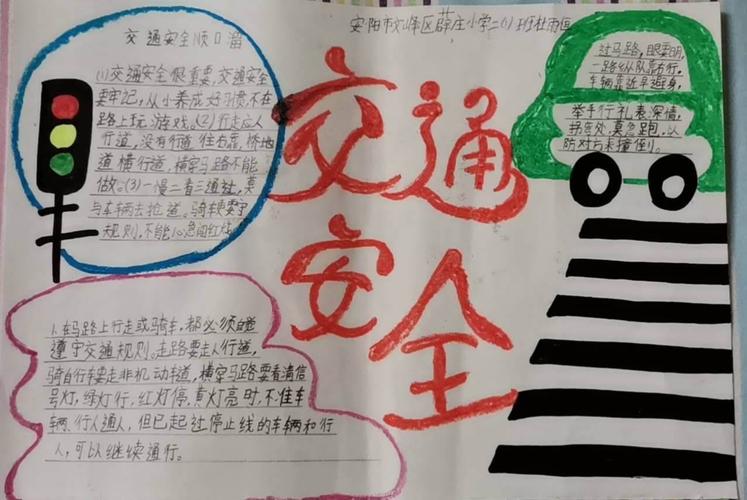 安阳市文峰区薛庄小学二(1)班杜雨
交通安全顺口溜
(1)交通安全很重要,交通安全
要牢记,从小养成好习惯,不在
路上玩游戏。(2)行走应人
行道,没有行道往右靠,
道横行道,横穿马路不能
做。(3)一慢二看三通过,莫
与车辆去抢道。骑车要守
规则,不能心急闯红灯
交通
安全
过马路,眼要明,
一路纵队靠右行,
车辆靠近早避身,
举手行礼表深情,
拐弯处,莫急跑,以
防对方来撞倒。
1.在马路上行走或骑车,都必须自觉
遵守交通规则。走路要走人行道,
骑自行车要走非机动车道,横穿马路要看清信
号灯,绿灯行,红灯停,黄灯亮时,不准车
辆、行人通人,但已起过停止线的车辆和行
人,可以继续通行。